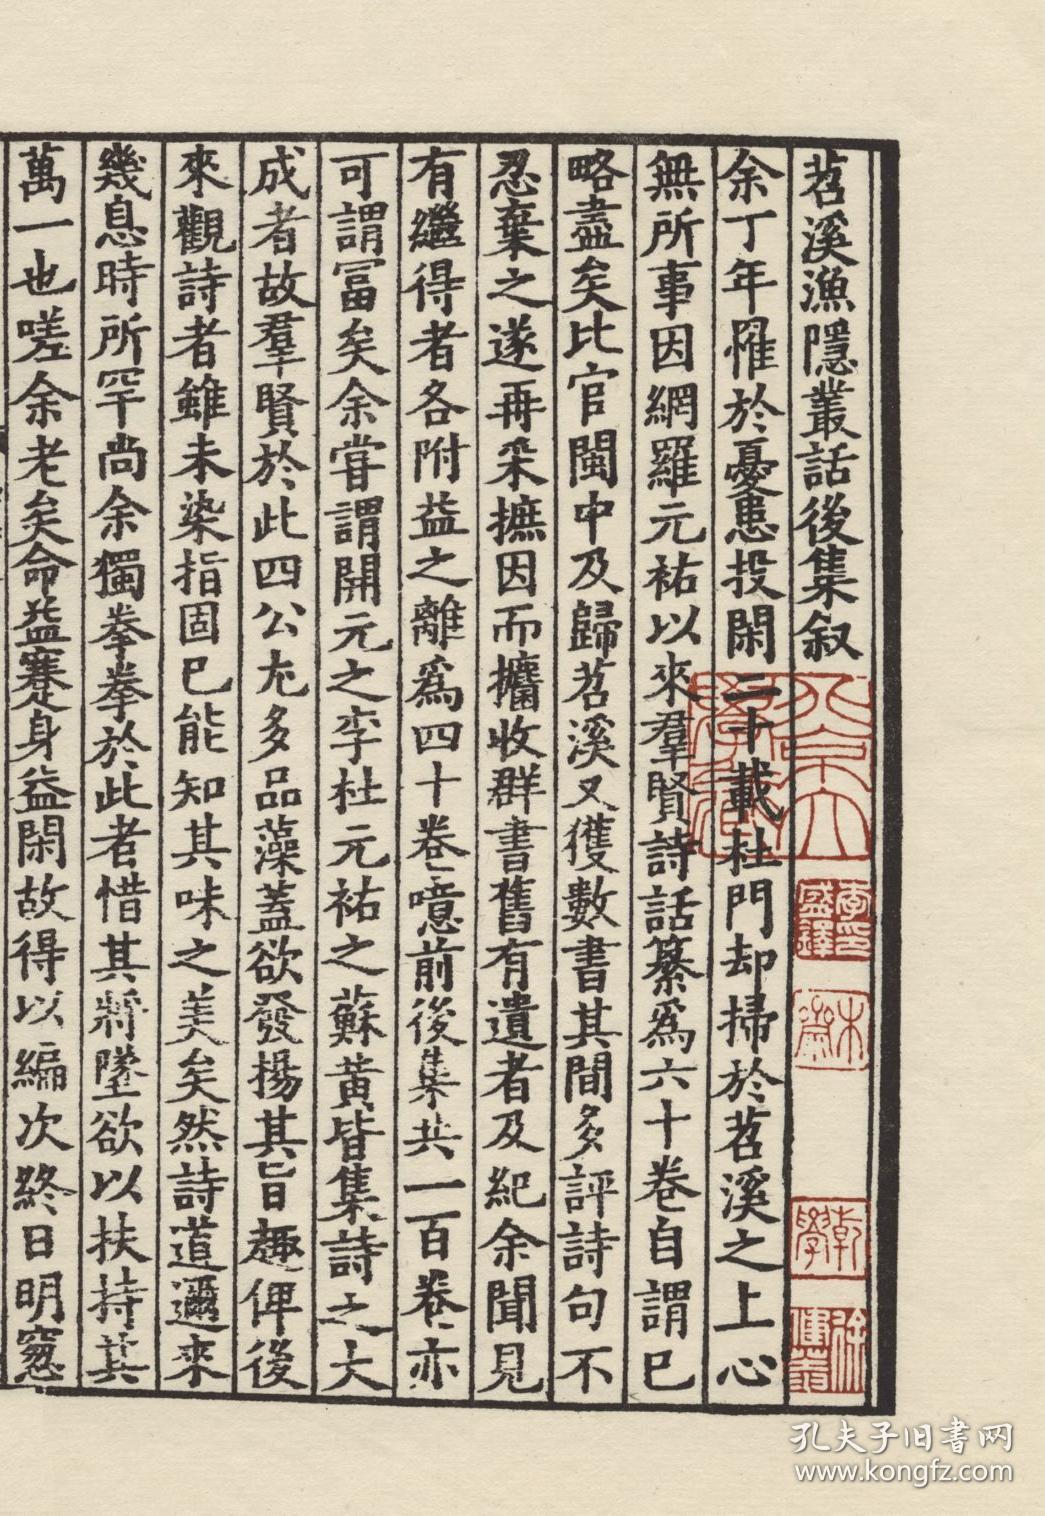 苕溪漁隱叢話後集叙
余丁年罹於憂患投閑二十載杜門却掃於苕溪之上心
無所事因網羅元祐以來羣賢詩話纂爲六十卷自謂已
略盡矣比官閩中及歸苕溪又獲數書其間多評詩句不
忍棄之遂再采摭因而攟收群書舊有遺者及紀余聞見
有繼得者各附益之離爲四十卷噫前後集共一百卷亦
可謂富矣余嘗謂開元之李杜元祐之蘇黃皆集詩之大
成者故羣賢於此四公尤多品藻蓋欲發揚其旨趣俾後
來觀詩者雖未染指固已能知其味之美矣然詩道邇來
幾息時所罕尚余獨拳拳於此者惜其將墜欲以扶持其
萬一也嗟余老矣命益蹇身益閑故得以編次終日明窻
乾學
徐健菴
孔夫子旧书网
www.kongfz.com